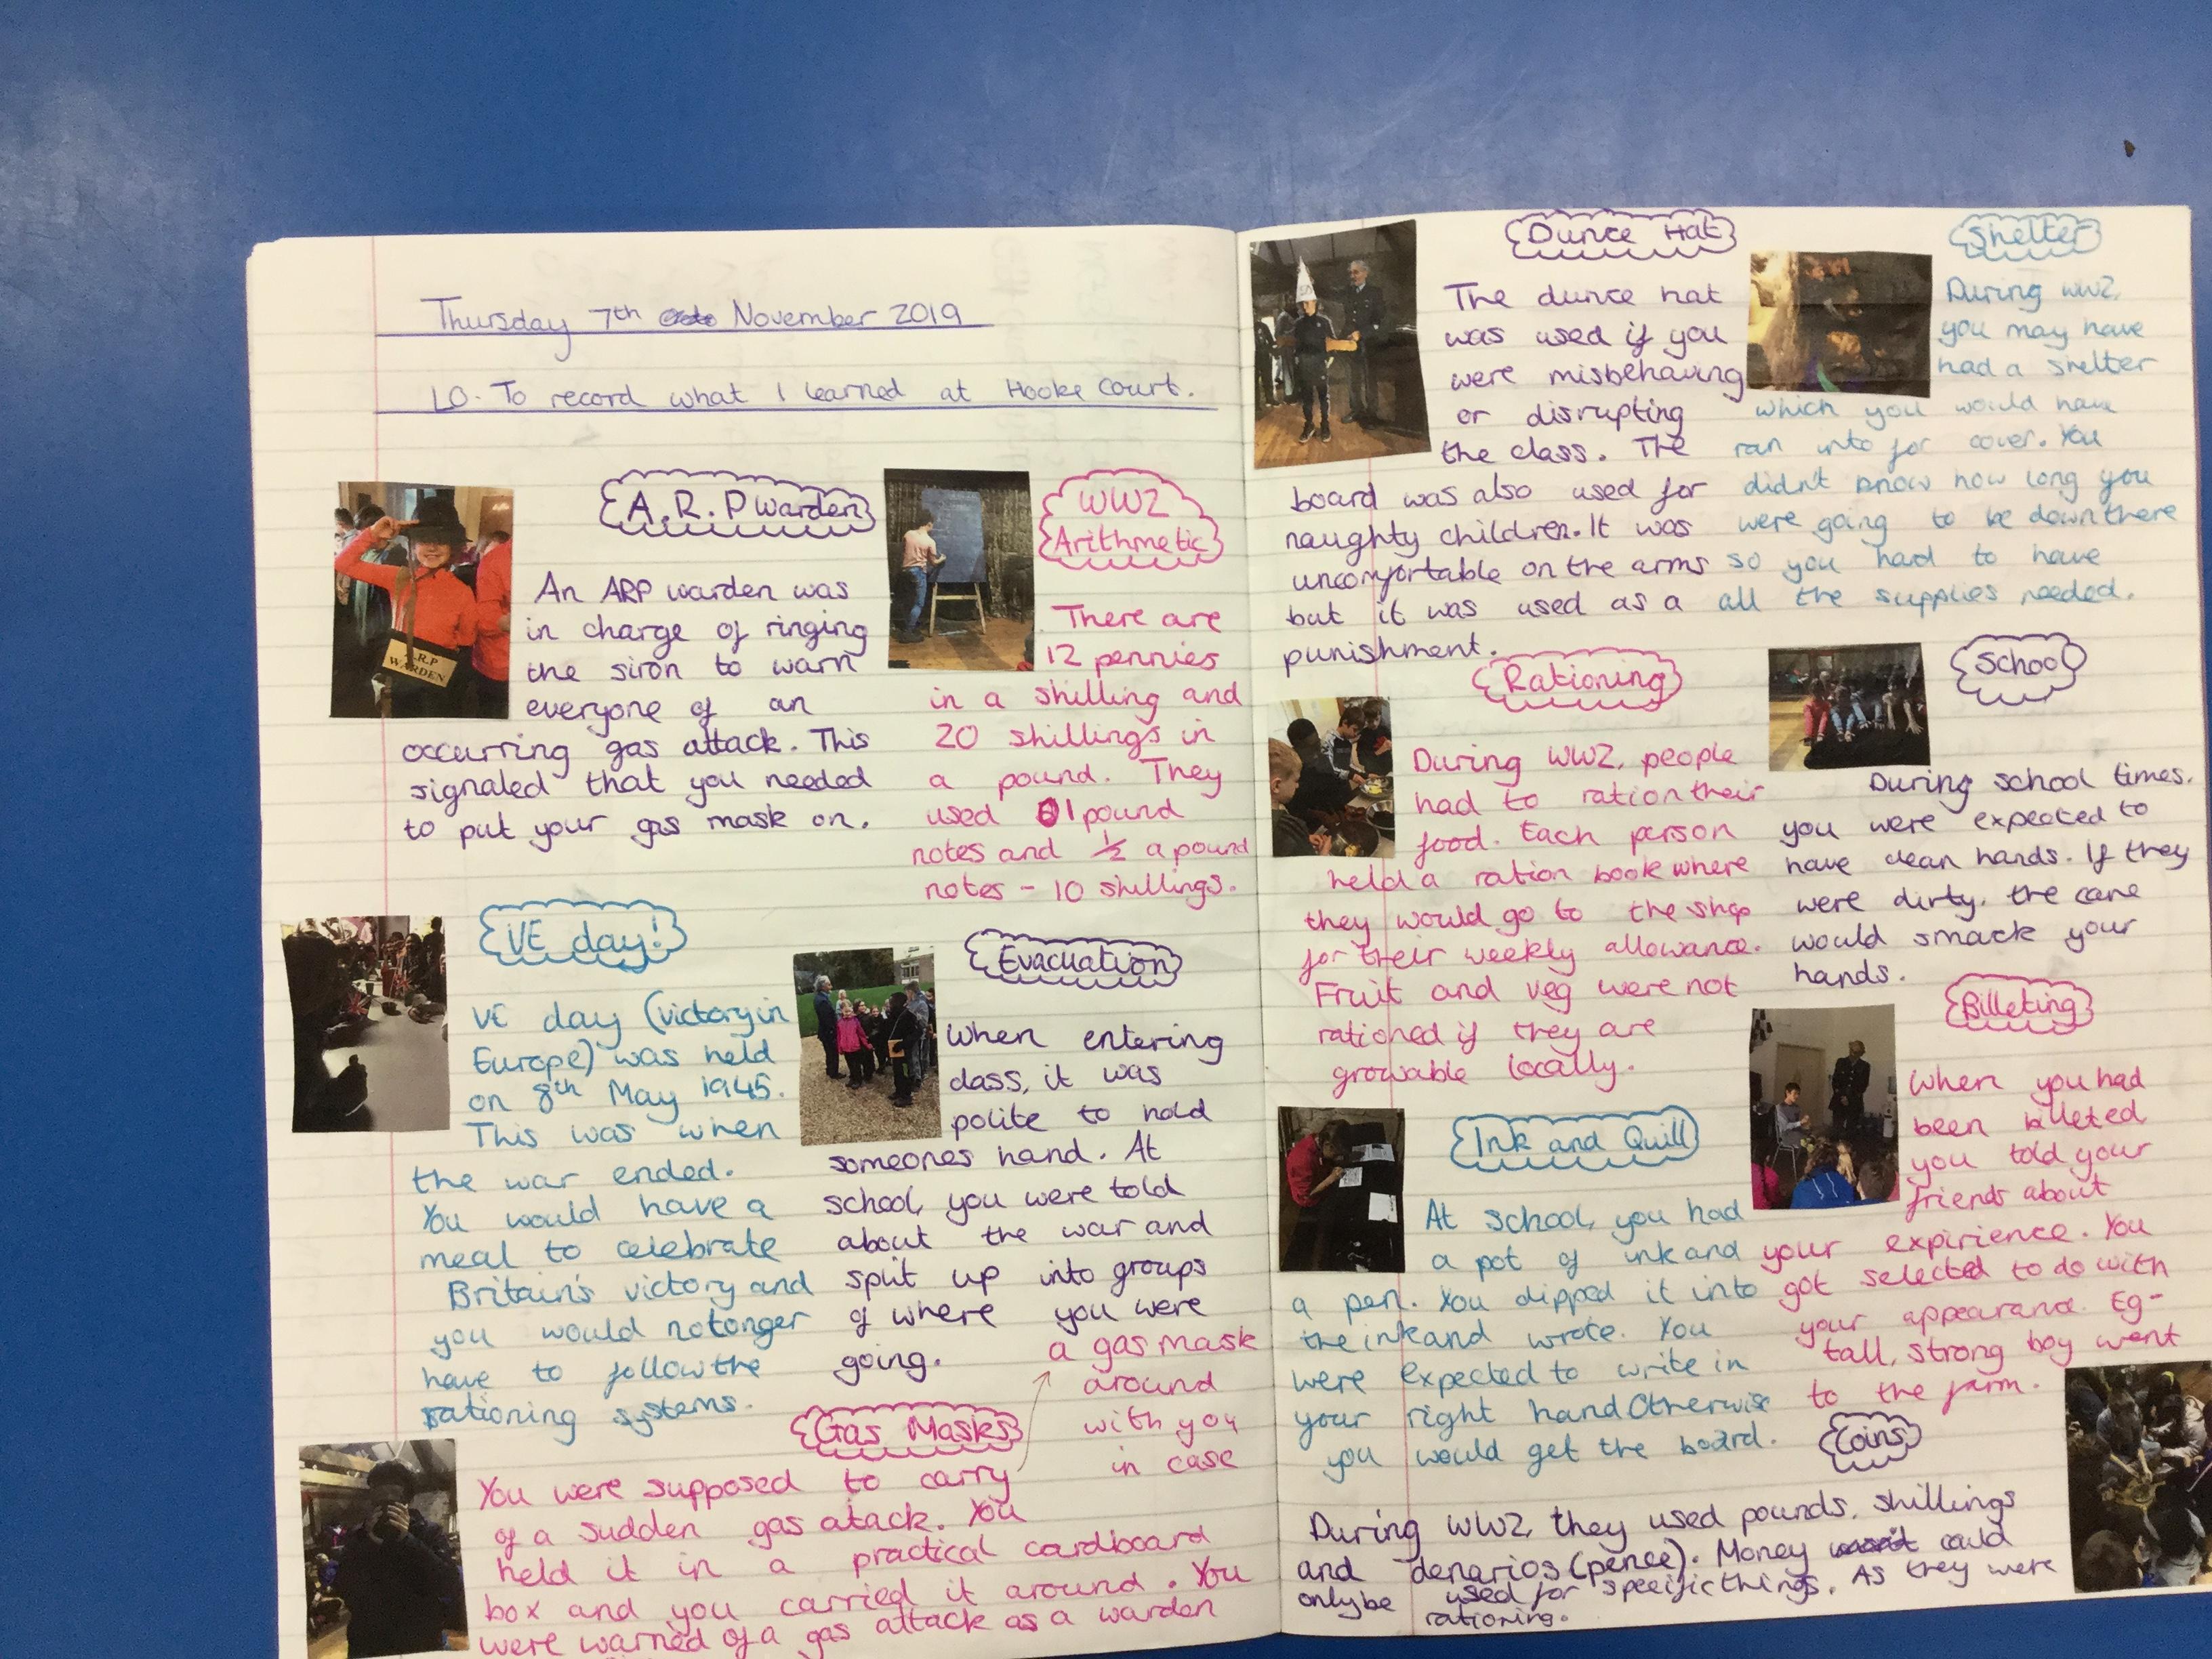 Thursday 7th November 2019
LO. To record what I learned at Hooke Court.
A.R.P Warden
A.R.P
WARDEN
An ARP warden was
in charge of ringing
the siron to warn
everyone of an
occurring gas attack. This
signaled that you needed
to put your gas mask on.
WW2
Arithmetic
There are
12 pennies
in a shilling and
20 shillings in
a pound. They
used 1 pound
notes and ½ a pound
notes - 10 shillings.
VE day!
VE day (victory in
Europe) was held
on 8th May 1945.
This was when
the war ended.
You would have a
meal to celebrate
Britain's victory and
you would no longer
have to follow the
rationing systems.
Evacuation
When entering
class, it was
polite to hold
someones hand. At
school, you were told
about the war and
split up into groups
of where you were
going.
Gas Masks
You were supposed to carry
a gas mask
around
with you
in case
of a sudden gas atack. You
held it in a practical cardboard
box and you carried it around. You
were warned of a gas attack as a warden
Dunce Hat
The dunce hat
was used if you
were misbehaving
or disrupting
the class. The
board was also used for
naughty children. It was
uncomfortable on the arms
but it was used as a
punishment.
Shelter
During WW2,
you may have
had a shelter
which you would have
ran into for cover. You
didn't know how long you
were going to be down there
so you had to have
all the supplies needed.
Rationing
During WW2, people
had to ration their
food. Each person
held a ration book where
they would go to the shop
for their weekly allowance.
Fruit and veg were not
rationed if they are
growable locally.
School
During school times,
you were expected to
have clean hands. If they
were dirty, the cane
would smack your
hands.
Ink and Quill
At school, you had
a pot of ink and
a pen. You dipped it into
the ink and wrote. You
were expected to write in
your right hand Otherwise
you would get the board.
Billeting
When you had
been billeted,
you told your
friends about
your expirience. You
got selected to do with
your appearance. Eg-
tall, strong boy went
to the farm.
Coins
During WW2, they used pounds, shillings
and denarios (pence). Money could
only be used for specific things. As they were
rationing.